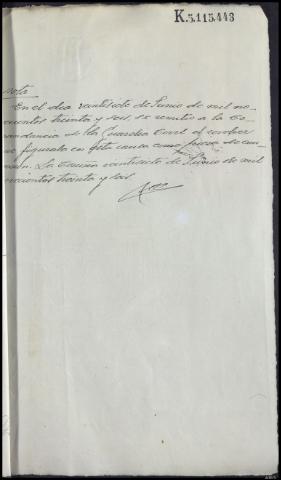 K.5.115.443
nota
En el dia veintisiete de Junio de mil no-
cientos treinta y seis, se remitio a la Co-
andancia de la Guardia Civil el revolver
figuraba en esta causa como pieza de con-
La Coruña veintisiete de Junio de mil
ecientos treinta y seis